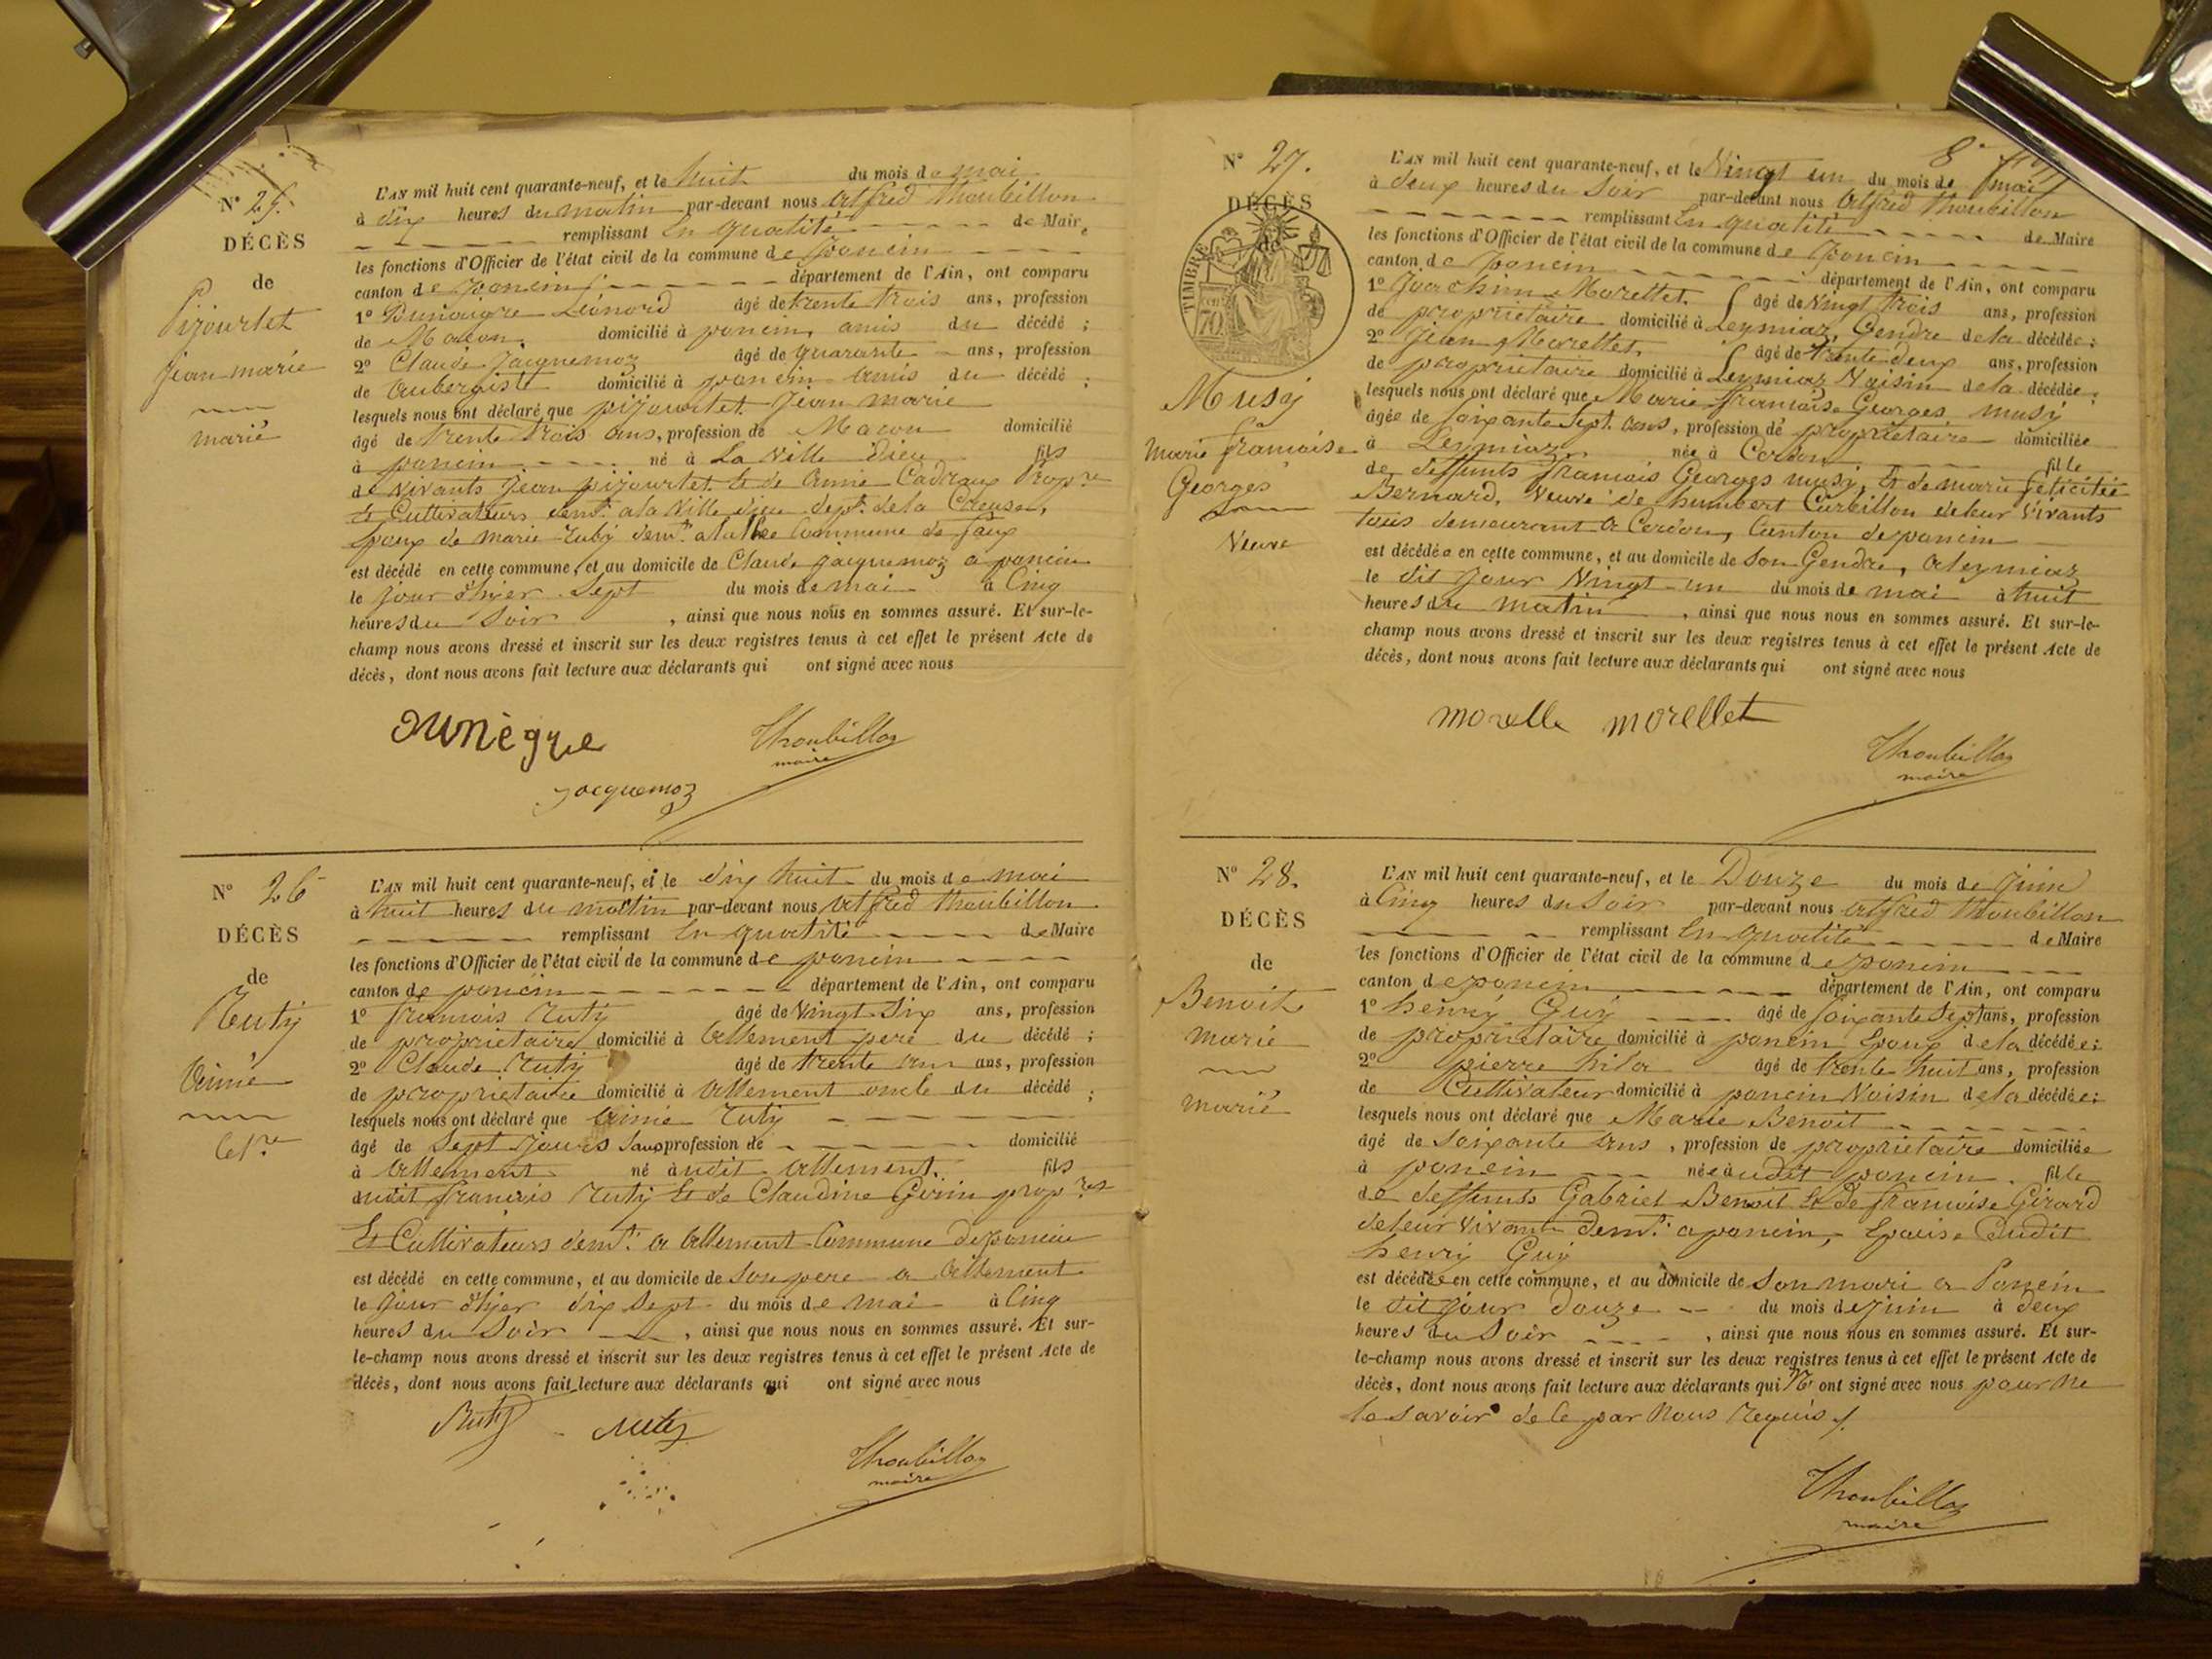 N° 25.
DÉCÈS
de
Pijourlet
jean marie
marié
L'AN mil huit cent quarante-neuf, et le huit du mois de mai
à dix heures du matin par-devant nous Alfred Thoubillon
remplissant En qualité de Maire
les fonctions d'Officier de l'état civil de la commune de poncin
canton de poncin département de l'Ain, ont comparu
1° Léonord âgé de trente trois ans, profession
de Macon, domicilié à poncin, amis du décédé ;
2° Claude Jacquemoz âgé de quarante ans, profession
de Aubergiste domicilié à poncin Amis du décédé ;
lesquels nous ont déclaré que pijourlet jean marie
âgé de trente trois ans, profession de Macon domicilié
à poncin né à La Ville Dieu fils
de vivants Jean pijourlet et de Anne Propre
Et Cultivateurs demt. a la Ville dieu dept. de la Creuse,
Epoux de marie Ruby demt. a la commune de faux
est décédé en cette commune, et au domicile de Claude jacquemoz a poncin
le jour d'hjer Sept du mois de mai à Cinq
heures du Soir , ainsi que nous nous en sommes assuré. Et sur-le-
champ nous avons dressé et inscrit sur les deux registres tenus à cet effet le présent Acte de
décès, dont nous avons fait lecture aux déclarants qui ont signé avec nous
Thoubillon
maire
jacquemoz
N° 26
DÉCÈS
de
Ruty
Aimé
Celre
L'AN mil huit cent quarante-neuf, et le dix huit du mois de mai
à huit heures du matin par-devant nous Alfred Thoubillon
remplissant En qualité de Maire
les fonctions d'Officier de l'état civil de la commune de poncin
canton de poncin département de l'Ain, ont comparu
1° françois Ruty âgé de Vingt Six ans, profession
de propriétaire domicilié à Allement pere du décédé ;
2° Claude Ruty âgé de trente un ans, profession
de propriétaire domicilié à Allement oncle du décédé ;
lesquels nous ont déclaré que Aimé Ruty
âgé de Sept jours Sans profession de domicilié
à Allement né à udit Allement. fils
dudit françois Ruty Et de Claudine Girin propres
Et Cultivateurs demt. a Allement Commune de poncin
est décédé en cette commune, et au domicile de Son pere a Allement
le jour d'hjer dix Sept du mois de mai à Cinq
heures du Soir , ainsi que nous nous en sommes assuré. Et sur-
le-champ nous avons dressé et inscrit sur les deux registres tenus à cet effet le présent Acte de
décès, dont nous avons fait lecture aux déclarants qui ont signé avec nous
Ruty Ruty
Thoubillon
maire
N° 27.
DÉCÈS
de
TIMBRE
70
Musy
Marie francoise
Georges
Veuve
L'AN mil huit cent quarante-neuf, et le Vingt un du mois de mai
à deux heures du Soir par-devant nous Alfred Thoubillon
remplissant En qualité de Maire
les fonctions d'Officier de l'état civil de la commune de Poncin
canton de Poncin département de l'Ain, ont comparu
1° Joachim Morellet, âgé de Vingt trois ans, profession
de propriétaire domicilié à Leymiaz, Gendre de la décédée ;
2° Jean Morellet, âgé de trente deux ans, profession
de propriétaire domicilié à Leymiaz Voisin de la décédée ;
lesquels nous ont déclaré que Marie françoise Georges musy
âgée de soixante Sept ans, profession de propriétaire domiciliée
à Leymiaz, née à Cordon fille
de deffunts francois Georges musy, Et de marie félicitée
Bernard, Veuve de humbert Curbillon de leur Vivants
tous demeurant a Cordon, Canton de poncin
est décédée en cette commune, et au domicile de Son Gendre, a leymiaz
le dit jour Vingt un du mois de mai à huit
heures du matin , ainsi que nous nous en sommes assuré. Et sur-le-
champ nous avons dressé et inscrit sur les deux registres tenus à cet effet le présent Acte de
décès, dont nous avons fait lecture aux déclarants qui ont signé avec nous
morelle morellet
Thoubillon
maire
N° 28.
DÉCÈS
de
Benoit
Marie
marié
L'AN mil huit cent quarante-neuf, et le Douze du mois de juin
à Cinq heures du Soir par-devant nous Alfred Thoubillon
remplissant En qualité de Maire
les fonctions d'Officier de l'état civil de la commune de poncin
canton de poncin département de l'Ain, ont comparu
1° henry Guy âgé de soixante Sept ans, profession
de propriétaire domicilié à poncin Epoux de la décédée ;
2° pierre hila âgé de trente huit ans, profession
de Cultivateur domicilié à poncin Voisin de la décédée ;
lesquels nous ont déclaré que Marie Benoit
âgé de Soixante ans, profession de propriétaire domiciliée
à poncin née à udit poncin. fille
de deffunts Gabriel Benoit Et de francoise Girard
de leur vivant demt. a poncin, Epouse Dudit
henry Guy
est décédée en cette commune, et au domicile de Son mari a Poncin
le dit jour douze du mois de juin à deux
heures du Soir , ainsi que nous nous en sommes assuré. Et sur-
le-champ nous avons dressé et inscrit sur les deux registres tenus à cet effet le présent Acte de
décès, dont nous avons fait lecture aux déclarants qui N' ont signé avec nous pour ne
le savoir de ce par Nous requis /.
Thoubillon
maire